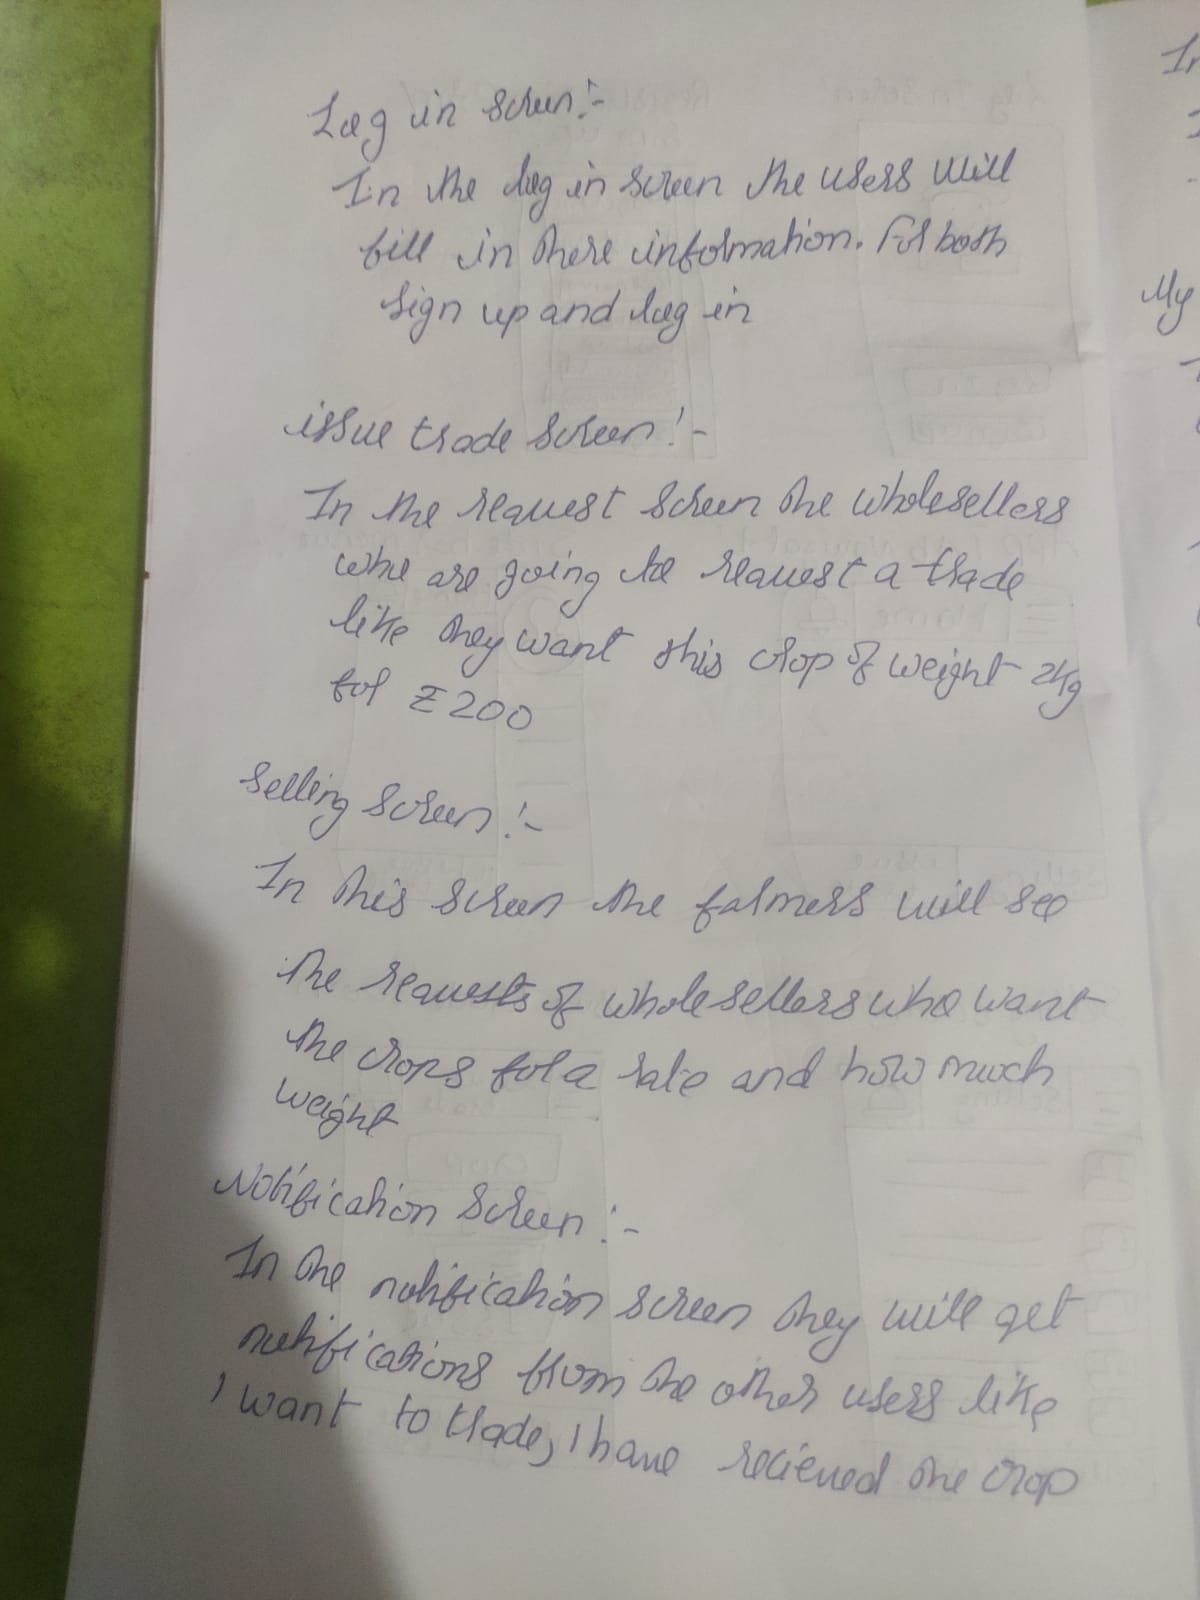 Log in screen:-
In the log in screen the users will
fill in there information. For both
sign up and log in
issue trade screen:-
In the request screen the wholesellers
who are going to request a trade
like they want this crop of weight 2kg
for ₹200
Selling screen:-
In this screen the farmers will see
the requests of wholesellers who want
the crops for a rate and how much
weight
Notification screen:-
In the notification screen they will get
notifications from the other users like
I want to trade, I have recieved the crop
In
My